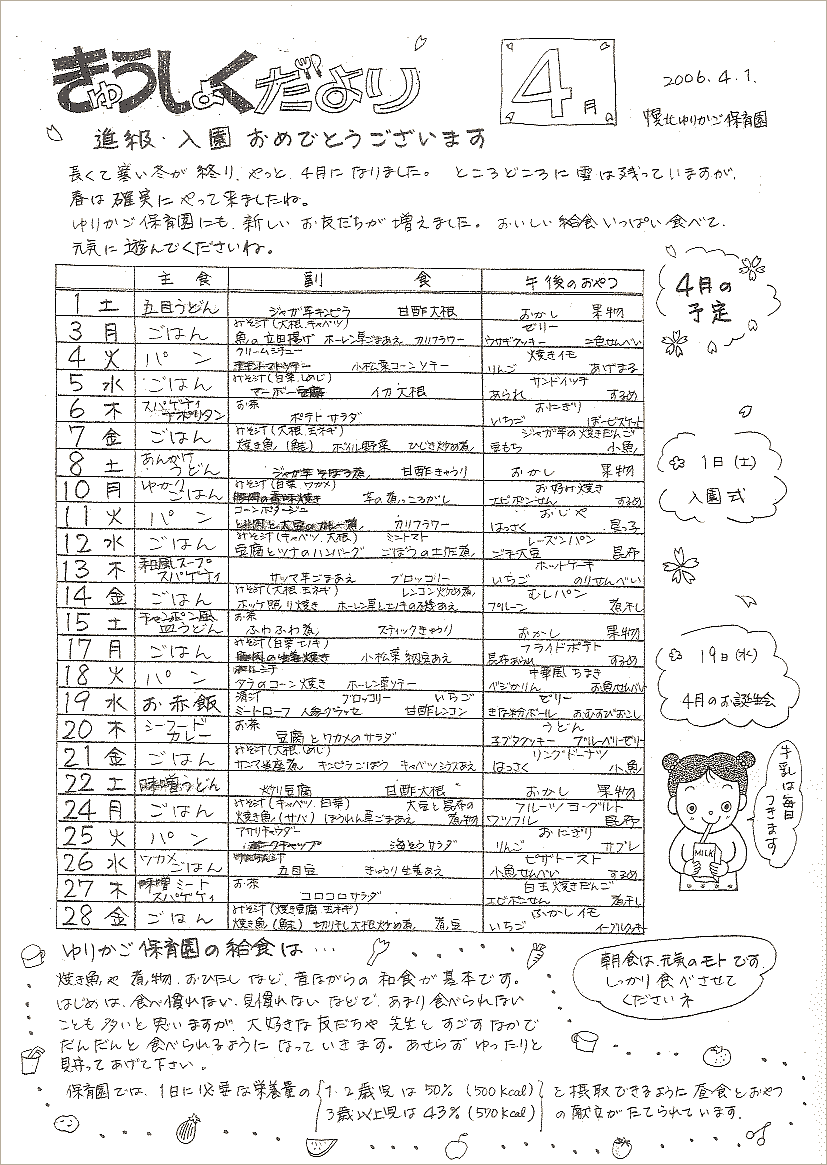 きゅうしょくだより
4月
2006.4.1.
ゆりかご保育園
進級・入園 おめでとうございます
長くて寒い冬が終り、やっと、4月になりました。 ところどころに雪は残っていますが、
春は確実にやって来ましたね。
ゆりかご保育園にも、新しいお友だちが増えました。 おいしい給食いっぱい食べて、
元気に遊んでくださいね。
主食 副食 午後のおやつ
1 土 五目うどん ジャガ芋キンピラ 甘酢大根 おかし 果物
みそ汁(大根、キャベツ) ゼリー
3 月 ごはん 魚の立田揚げ ホーレン草ごまあえ カリフラワー ウサギクッキー 二色せんべい
クリームシチュー 焼きイモ
4 火 パン 小松菜コーンソテー りんご あげまる
みそ汁(白菜、しめじ) サンドイッチ
5 水 ごはん マーボー豆腐 イカ大根 あられ するめ
スパゲティ お茶 おにぎり
6 木 ナポリタン ポテトサラダ いちご ぼービスケット
みそ汁(大根、玉ネギ) ジャガ芋の焼きだんご
7 金 ごはん 焼き魚(鮭) ボイル野菜 ひじき炒め煮 豆もち 小魚
8 土 あんかけうどん ジャガ芋そぼろ煮 甘酢きゅうり おかし 果物
みそ汁(白菜、ワカメ) お好み焼き
10 月 ゆかりごはん 芋の煮っころがし エビポンせん するめ
コーンポタージュ おじや
11 火 パン カリフラワー はっさく
みそ汁(キャベツ、大根) ミニトマト レーズンパン
12 水 ごはん 豆腐とツナのハンバーグ ごぼうの土佐煮 昆布
和風スープ ホットケーキ
13 木 スパゲティ サツマ芋ごまあえ ブロッコリー いちご のりせんべい
みそ汁(大根、玉ネギ) レンコン炒め煮 むしパン
14 金 ごはん ホッケ照り焼き プルーン 煮干し
チャンポン風 お茶
15 土 皿うどん ふわふわ煮 スティックきゅうり おかし 果物
みそ汁(白菜、エノキ) フライドポテト
17 月 ごはん 小松菜納豆あえ 昆布あられ するめ
中華風ちまき
18 火 パン タラのコーン焼き ホーレン草ソテー ベジかりん お魚せんべい
清汁 ブロッコリー いちご ゼリー
19 水 お赤飯 ミートローフ 人参グラッセ 甘酢レンコン きな粉ボール おむすびおこし
シーフード お茶 うどん
20 木 カレー 豆腐とワカメのサラダ ブルーベリーゼリー
みそ汁(大根、しめじ) リングドーナツ
21 金 ごはん サンマ生姜煮 キンピラごぼう はっさく 小魚
22 土 味噌うどん 炒り豆腐 甘酢大根 おかし 果物
みそ汁(キャベツ、白菜) 大豆と昆布の フルーツヨーグルト
24 月 ごはん 焼き魚(サバ) ほうれん草ごまあえ 煮物 ワッフル 昆布
アサリチャウダー おにぎり
25 火 パン 海そうサラダ りんご サブレ
ピザトースト
26 水 ワカメごはん 五目豆 きゅうり生姜あえ 小魚せんべい するめ
味噌ミート お茶 白玉焼きだんご
27 木 スパゲティ コロコロサラダ エビポンせん 煮干し
みそ汁(焼き豆腐、玉ネギ) ふかしイモ
28 金 ごはん 焼き魚 切り干し大根炒め煮 煮豆 いちご
4月の
予定
1日(土)
入園式
19日(水)
4月のお誕生会
牛乳は毎日
つきます
MILK
ゆりかご保育園の給食は…
焼き魚や煮物、おひたしなど、昔ながらの和食が基本です。
はじめは、食べ慣れない、見慣れないなどで、あまり食べられない
ことも多いと思いますが、大好きな友だちや先生とすごすなかで
だんだんと食べられるようになっていきます。あせらずゆったりと
見守ってあげて下さい。
朝食は、元気のモトです
しっかり食べさせて
くださいネ
保育園では、1日に必要な栄養量の 1・2歳児は50%(500kcal) と摂取できるように昼食とおやつ
3歳以上児は43%(570kcal) の献立がたてられています。